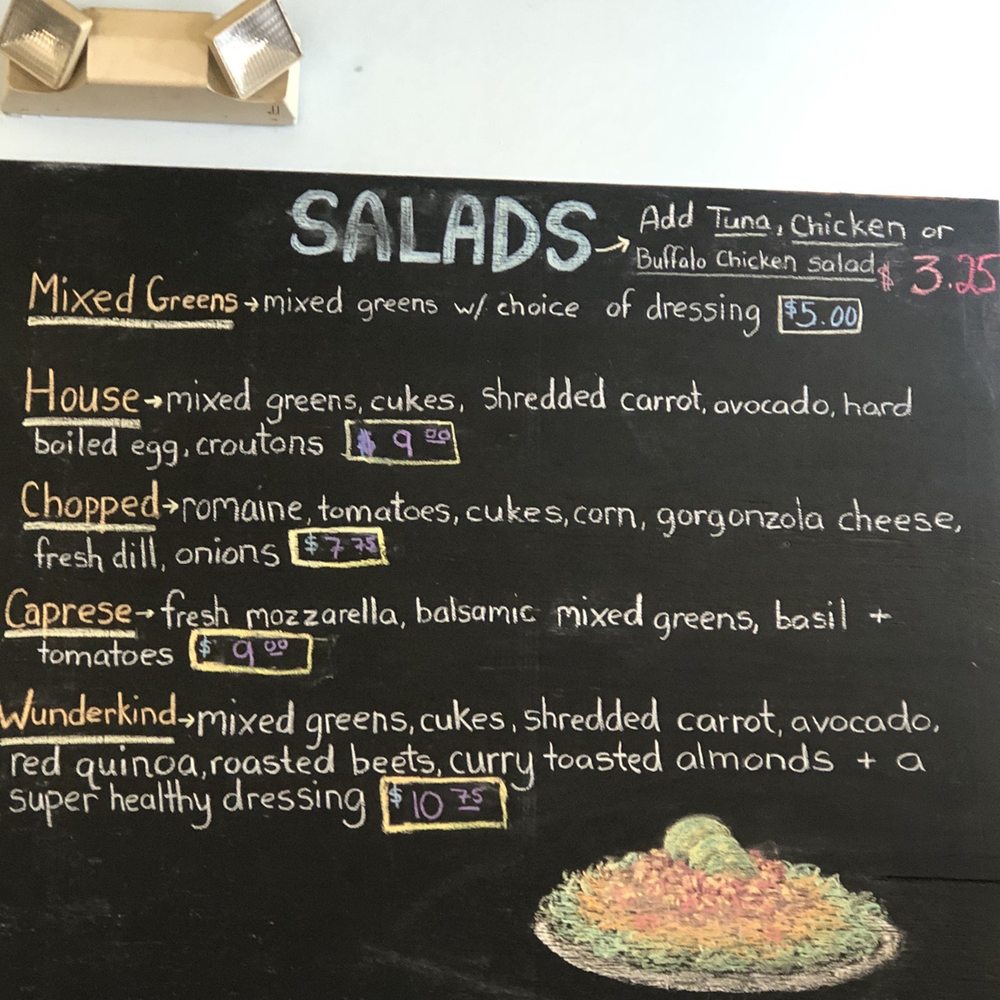 SALADS → Add Tuna, Chicken or
Buffalo Chicken Salad $ 3.25
Mixed Greens → mixed greens w/ choice of dressing $5.00
House → mixed greens, cukes, shredded carrot, avocado, hard
boiled egg, croutons $ 9 00
Chopped → romaine, tomatoes, cukes, corn, gorgonzola cheese,
fresh dill, onions $ 7 75
Caprese → fresh mozzarella, balsamic mixed greens, basil +
tomatoes $ 9 00
Wunderkind → mixed greens, cukes, shredded carrot, avocado,
red quinoa, roasted beets, curry toasted almonds + a
super healthy dressing $ 10 75